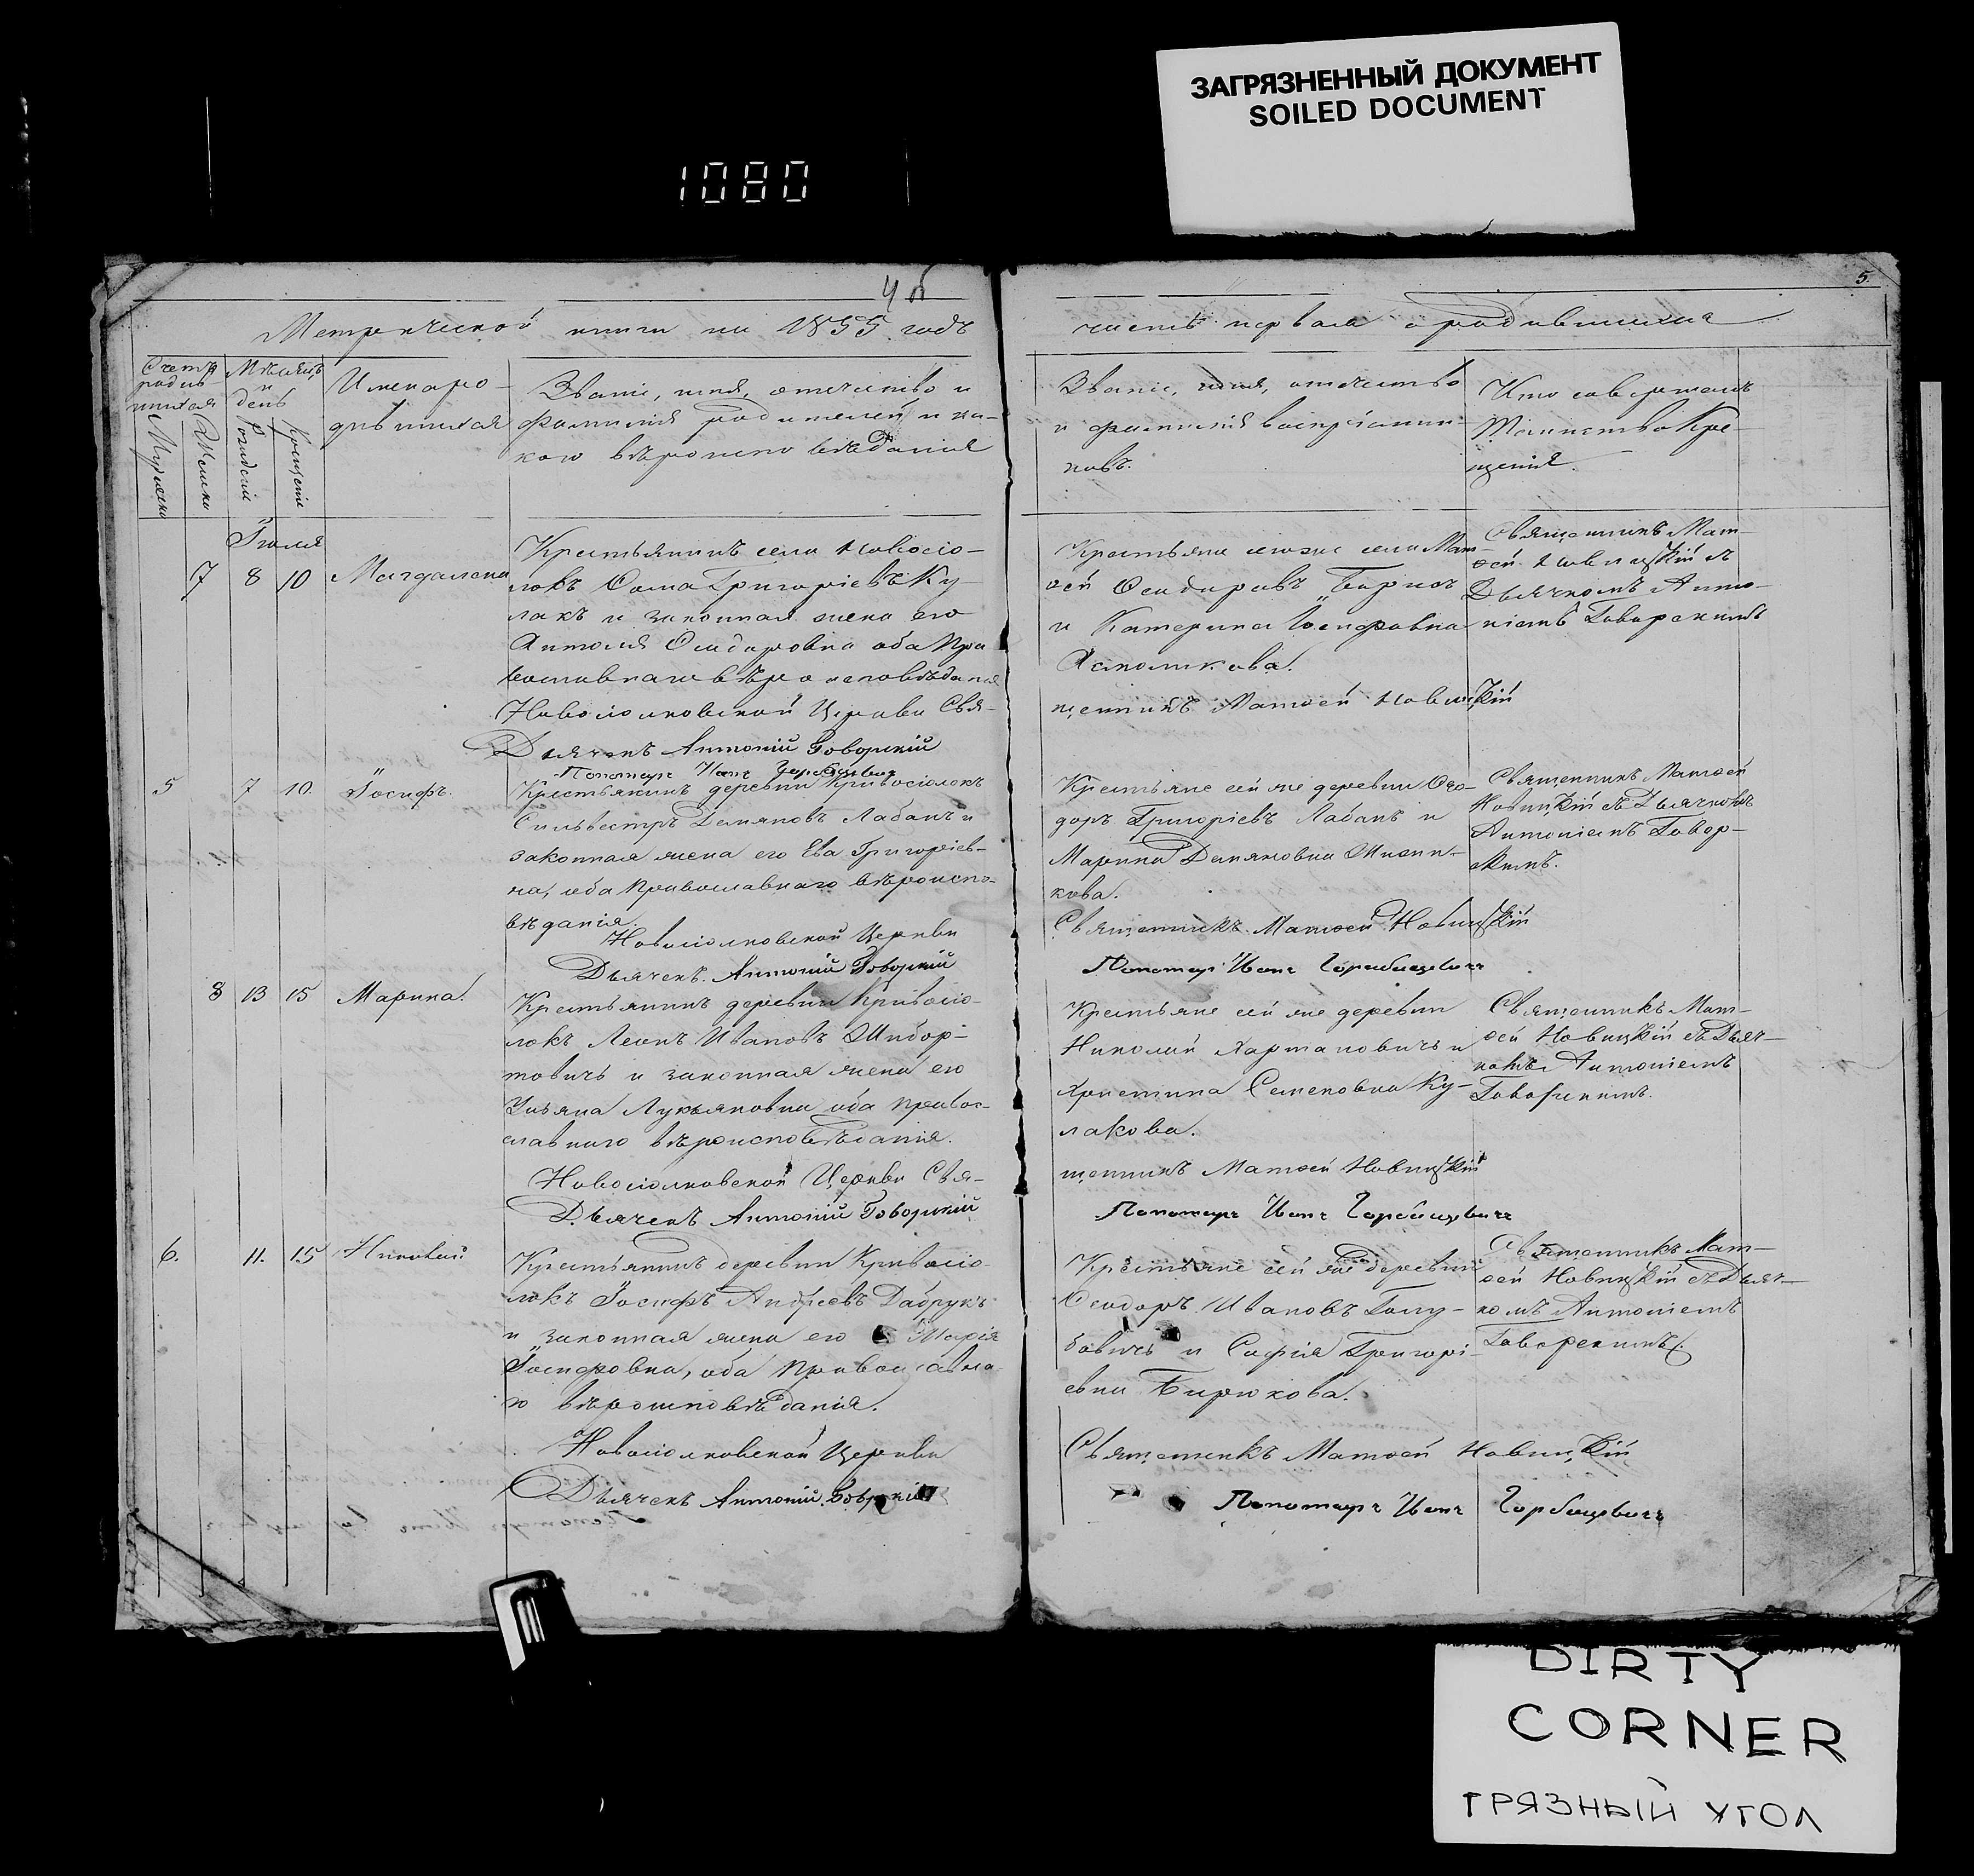 ЗАГРЯЗНЕННЫЙ ДОКУМЕНТ
SOILED DOCUMENT
1080
4 об
5.
Метрической книги на 1855 годъ
часть первая о родившихся
Счетъ родившихся
Мужеска
Женска
Мѣсяцъ и день
Рожденія
Крещенія
Имена родившихся
Званіе, имя, отечество и
фамилія родителей и ка-
кого вѣроисповѣданія
Званіе, имя, отечество
и фамилія воспріемни-
ковъ.
Кто совершалъ
Таинство Кре-
щенія.
Іюля
7 8 10 Магдалена
Крестьянинъ села Новосіо-
локъ Ѳома Григоріевъ Ку-
лакъ и законная жена его
Ѳеодоровна оба Пра
вославнаго вѣроисповѣданія
Новосіолковской Церкви Свя-
Дьячекъ Антоній Говорскій
Пономарь Иванъ Горбацевичъ
Крестьяне тогоже села Мат-
ѳей Ѳеодоровъ Бирюкъ
и Катерина Іосифовна
щенникъ Матѳей Новицкій
Священникъ Мат-
ѳей Новицкій съ
Дьячкомъ Анто-
ніемъ Говорскимъ
5 7 10. Іосифъ.
Крестьянинъ деревни Кривосіолокъ
Сильвестръ Демяновъ Лабанъ и
законная жена его Ева Григоріев-
на, оба Православнаго вѣроиспо-
вѣданія.
Новосіолковской Церкви
Дьячекъ Антоній Говорскій
Крестьяне сей же деревни Ѳео-
доръ Григоріевъ Лабанъ и
Марина Демяновна
кова.
Священникъ Матѳей Новицкій
Пономарь Иванъ Горбацевичъ
Священникъ Матѳей
Новицкій съ Дьячкомъ
Антоніемъ Говор-
скимъ.
8 13 15 Марина.
Крестьянинъ деревни Кривосіо-
локъ Леонъ Ивановъ Шибор-
товичъ и законная жена его
Ульяна Лукьяновна оба правос-
лавнаго вѣроисповѣданія.
Новосіолковской Церкви Свя-
Дьячекъ Антоній Говорскій
Крестьяне сей же деревни
Николай Хартановичъ и
Христина Семеновна Ку-
лакова.
щенникъ Матѳей Новицкій
Пономарь Иванъ Горбацевичъ
Священникъ Мат-
ѳей Новицкій съ Дьяч-
комъ Антоніемъ
Говорскимъ.
6. 11. 15 Николай
Крестьянинъ деревни Кривосіо-
локъ Іосифъ Андреевъ Дабрукъ
и законная жена его Марія
Іосифовна, оба Православна-
го вѣроисповѣданія.
Новосіолковской Церкви
Дьячекъ Антоній Говорскій
Крестьяне сей же деревни
Ѳеодоръ Ивановъ Голу-
бовичъ и Софія Григорі-
евна Бирюкова.
Священникъ Матѳей Новицкій
Пономарь Иванъ Горбацевичъ
Священникъ Мат-
ѳей Новицкій съ Дьяч-
комъ Антоніемъ
Говорскимъ.
DIRTY
CORNER
ГРЯЗНЫЙ УГОЛ